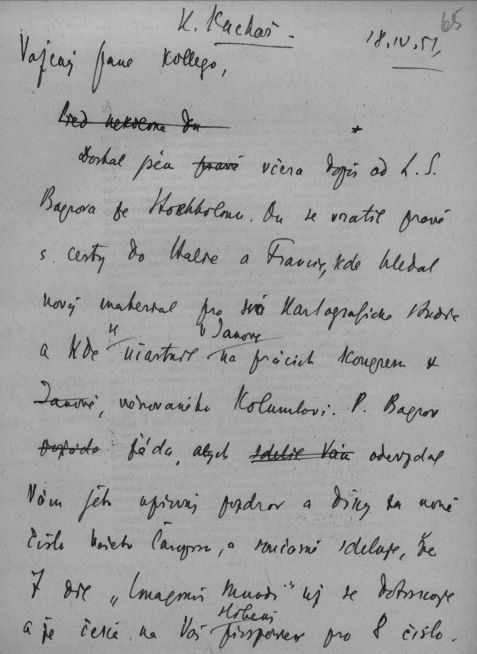 K. Kuchař.
65
18.IV.51,
Vážený pane kollego,
Před několika dn
Dostal jsem právě včera dopis od L. S.
Bagrova ze Stockholmu. On se vrátil právě
s cesty do Italie a Francie, kde hledal
nový material pro své kartografické studie
v Janově
a kde se účastnil na pracích kongresu v
Janově, věnovaného Kolumbovi. P. Bagrov
žádá, abych sdělil Vám odevzdal
Vám jeho upřímný pozdrav a díky za nové
číslo Vašeho časopisu, a současně sděluje, že
7 díl „Imago Mundi" už se dotiskuje
slíbený
a že čeká na Váš příspěvek pro 8 číslo.